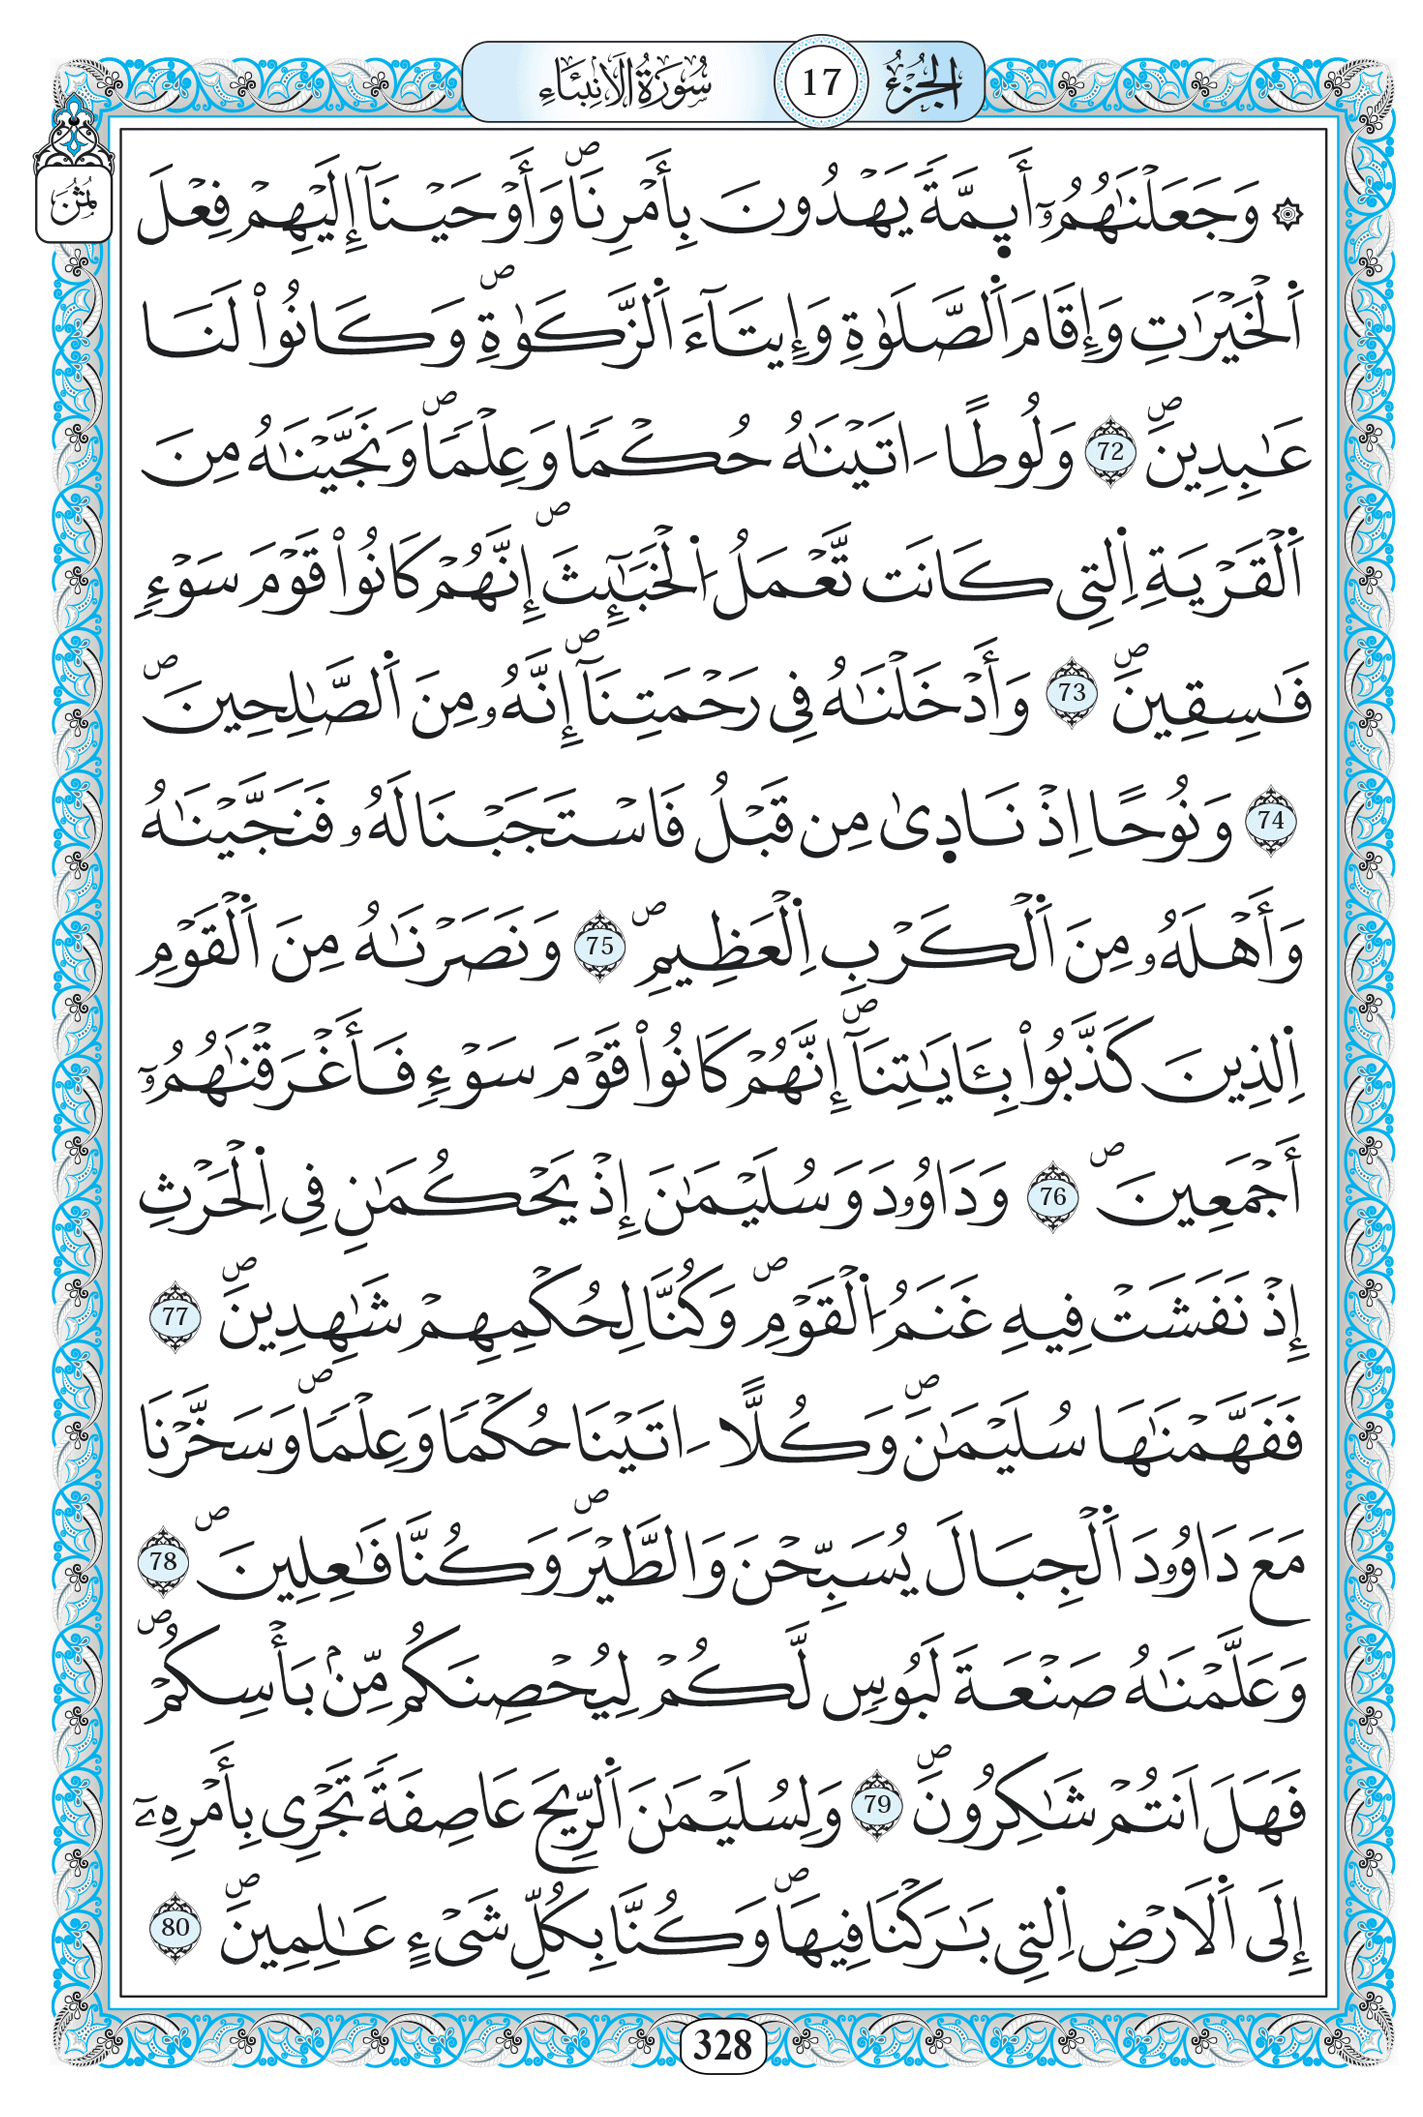 الجزء 17 سورة الانبياء
ثمن
۞ وَجَعَلْنَٰهُمُۥٓ أَئِمَّةٗ يَهْدُونَ بِأَمْرِنَاۖ وَأَوْحَيْنَآ إِلَيْهِمْ فِعْلَ
اَ۬لْخَيْرَٰتِ وَإِقَامَ اَ۬لصَّلَوٰةِ وَإِيتَآءَ اَ۬لزَّكَوٰةِۖ وَكَانُواْ لَنَا
عَٰبِدِينَۖ 72 وَلُوطاً ـ اتَيْنَٰهُ حُكْماٗ وَعِلْماٗۖ وَنَجَّيْنَٰهُ مِنَ
اَ۬لْقَرْيَةِ اِ۬لتِي كَانَت تَّعْمَلُ اُ۬لْخَبَٰٓئِثَۖ إِنَّهُمْ كَانُواْ قَوْمَ سَوْءٖ
فَٰسِقِينَۖ 73 وَأَدْخَلْنَٰهُ فِي رَحْمَتِنَآۖ إِنَّهُۥ مِنَ اَ۬لصَّٰلِحِينَۖ
74 وَنُوحاً اِذْ نَادٜىٰ مِن قَبْلُ فَاسْتَجَبْنَا لَهُۥ فَنَجَّيْنَٰهُ
وَأَهْلَهُۥ مِنَ اَ۬لْكَرْبِ اِ۬لْعَظِيمِۖ 75 وَنَصَرْنَٰهُ مِنَ اَ۬لْقَوْمِ
اِ۬لذِينَ كَذَّبُواْ بِـَٔايَٰتِنَآۖ إِنَّهُمْ كَانُواْ قَوْمَ سَوْءٖ فَأَغْرَقْنَٰهُمُۥٓ
أَجْمَعِينَۖ 76 وَدَاوُۥدَ وَسُلَيْمَٰنَ إِذْ يَحْكُمَٰنِ فِي اِ۬لْحَرْثِ
إِذْ نَفَشَتْ فِيهِ غَنَمُ اُ۬لْقَوْمِۖ وَكُنَّا لِحُكْمِهِمْ شَٰهِدِينَۖ 77
فَفَهَّمْنَٰهَا سُلَيْمَٰنَۖ وَكُلّاً ـ اتَيْنَا حُكْماٗ وَعِلْماٗۖ وَسَخَّرْنَا
مَعَ دَاوُۥدَ اَ۬لْجِبَالَ يُسَبِّحْنَ وَالطَّيْرَۖ وَكُنَّا فَٰعِلِينَۖ 78
وَعَلَّمْنَٰهُ صَنْعَةَ لَبُوسٖ لَّكُمْ لِيُحْصِنَكُم مِّنۢ بَأْسِكُمْۖ
فَهَلَ اَنتُمْ شَٰكِرُونَۖ 79 وَلِسُلَيْمَٰنَ اَ۬لرِّيحَ عَاصِفَةٗ تَجْرِي بِأَمْرِهِۦٓ
إِلَى اَ۬لَارْضِ اِ۬لتِي بَٰرَكْنَا فِيهَاۖ وَكُنَّا بِكُلِّ شَيْءٍ عَٰلِمِينَۖ 80
328